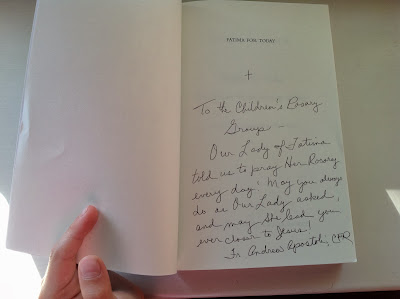 FATIMA FOR TODAY
To the Children's Rosary
Groups –
Our Lady of Fatima
told us to pray Her Rosary
every day! May you always
do as Our Lady asked,
and may she lead you
ever closer to Jesus!
Fr Andrew Apostoli, CFR